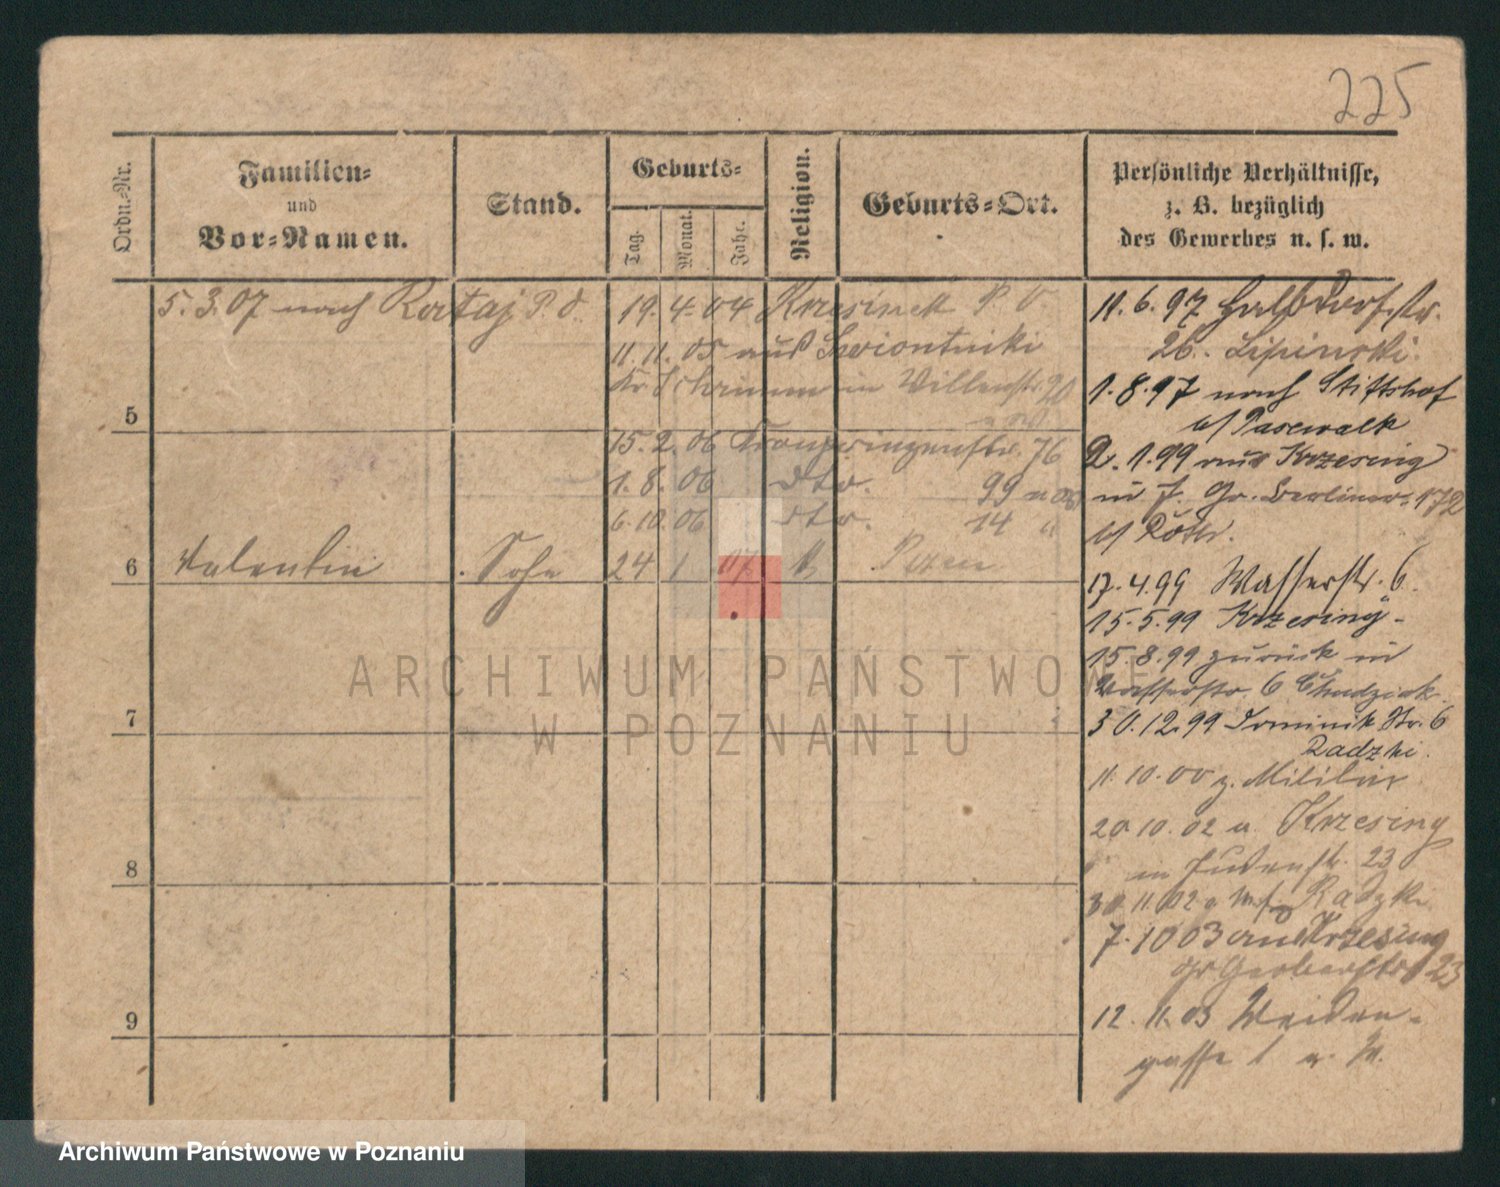 225
Ordn.-Nr.
Familien-
und
Vor-Namen.
Stand.
Geburts-
Tag.
Monat.
Jahr.
Religion.
Geburts-Ort.
Persönliche Verhältnisse,
z. B. bezüglich
des Gewerbes u. s. w.
5.3.07 nach Rataj P. O.
19.4.04 Krzesinek P. O
11.11.05 aus Swiontniki
Kr Schrimm in 20
5
15.2.06 Kronprinzenstr. 76
1.8.06 dto. 99
6.10.06 dto. 14 "
6 Valentin Sohn 24 1 07 k Posen
7
8
9
11.6.97 Halbdorfstr.
26. Lipinski.
1.8.97 nach Stiftshof
b/ Pasewalk
2.1.99 aus Krzesing
in J. Gr. Berliner. 172
b/
17.4.99 Wasserstr. 6.
15.5.99 Krzesing
15.8.99 zurück in
Wasserstr. 6 Chudziak
30.12.99 Dominik Str. 6
Radzki.
11.10.00 z. Militär
20.10.02 a. Krzesing
in Judenstr. 23
30.11.02 Radzki
7.10 03 aus Krzesing
Gr Gerberstr 23
12.11.03 Weiden-
gasse 1 a. W.
ARCHIWUM PAŃSTWOWE
W POZNANIU
Archiwum Państwowe w Poznaniu